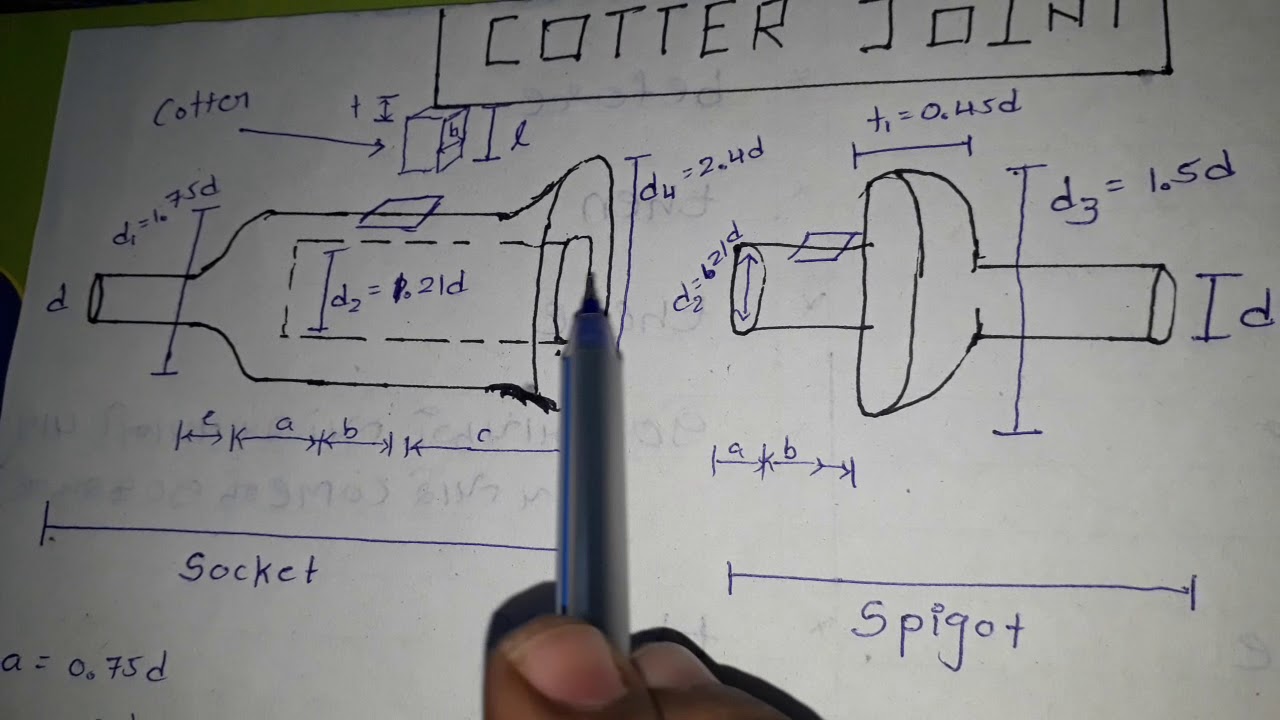 COTTER JOINT
Cotter
t
b
l
t₁ = 0.45d
d₁=1.75d
d₄ = 2.4d
d₃ = 1.5d
d
d₂ = 1.21d
d₂=1.21d
d
e
a
b
c
a
b
Socket
Spigot
a = 0.75d